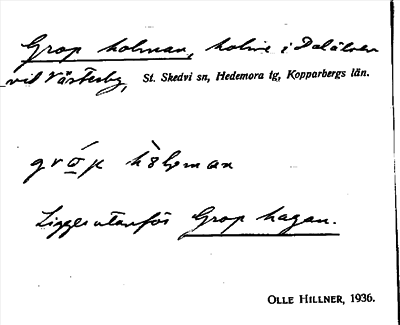 Grop holman, holme i Dalälven
vid Västerby, St. Skedvi sn, Hedemora tg, Kopparbergs län.
Ligger utanför Grop hagan.
OLLE HILLNER, 1936.